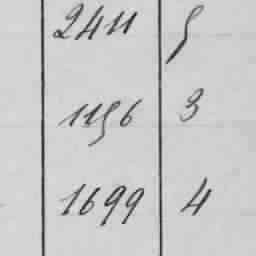 2411 5
1156 3
1699 4